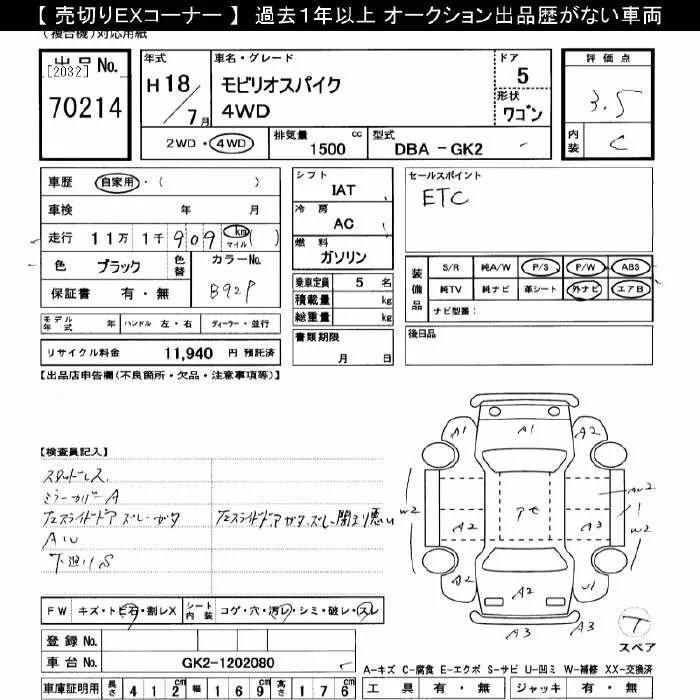 【 売切りEXコーナー 】 過去1年以上 オークション出品歴がない車両
(複合機) 対応用紙
出品 No. [2032]
70214
年式
H18/7月
車名・グレード
モビリオスパイク
4WD
ドア
5
形状
ワゴン
評価点
3.5
内装
C
2WD・4WD
排気量 cc
1500
型式
DBA-GK2
車歴 自家用・( )
車検 年 月
走行 11万 1千 909 km マイル ( )
色 ブラック 色替 カラーNo.
保証書 有・無 B92P
モデル年式 年 ハンドル 左・右 ディーラー・並行
リサイクル料金 11,940 円 預託済
シフト
IAT
冷房
AC
燃料
ガソリン
乗車定員 5 名
積載量 kg
総重量 kg
書類期限
月 日
セールスポイント
ETC
装備品
S/R 純A/W P/S P/W ABS
純TV 純ナビ 革シート 外ナビ エアB
ナビ型番:
後日品
【出品店申告欄(不良箇所・欠品・注意事項等)】
【検査員記入】
スタッドレス
ミラーカバーA
左スライドドア ズレ・ガタ
左スライドドア ガタ、ズレ 閉まり悪い
AW
下廻りS
A1
A1
A2
A2
A2
A2
A3
A2
A3
A3
W2
W2
アセ
スペア
FW キズ・トビ石・割レX シート内装 コゲ・穴・汚レ・シミ・破レ・スレ
登録 No.
車台 No. GK2-1202080
車庫証明用 長さ 412cm 幅 169cm 高さ 176cm
A-キズ C-腐食 E-エクボ S-サビ U-凹ミ W-補修 XX-交換済
工具 有・無 ジャッキ 有・無